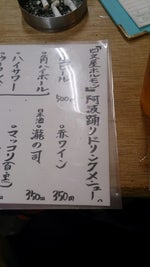 『四文屋ホルモン』阿波踊りドリンクメニュー。
ビール 500円
角ハイボール
ハイサワー
赤ワイン 350円
米酒 瀧の司 350円
マッコリ